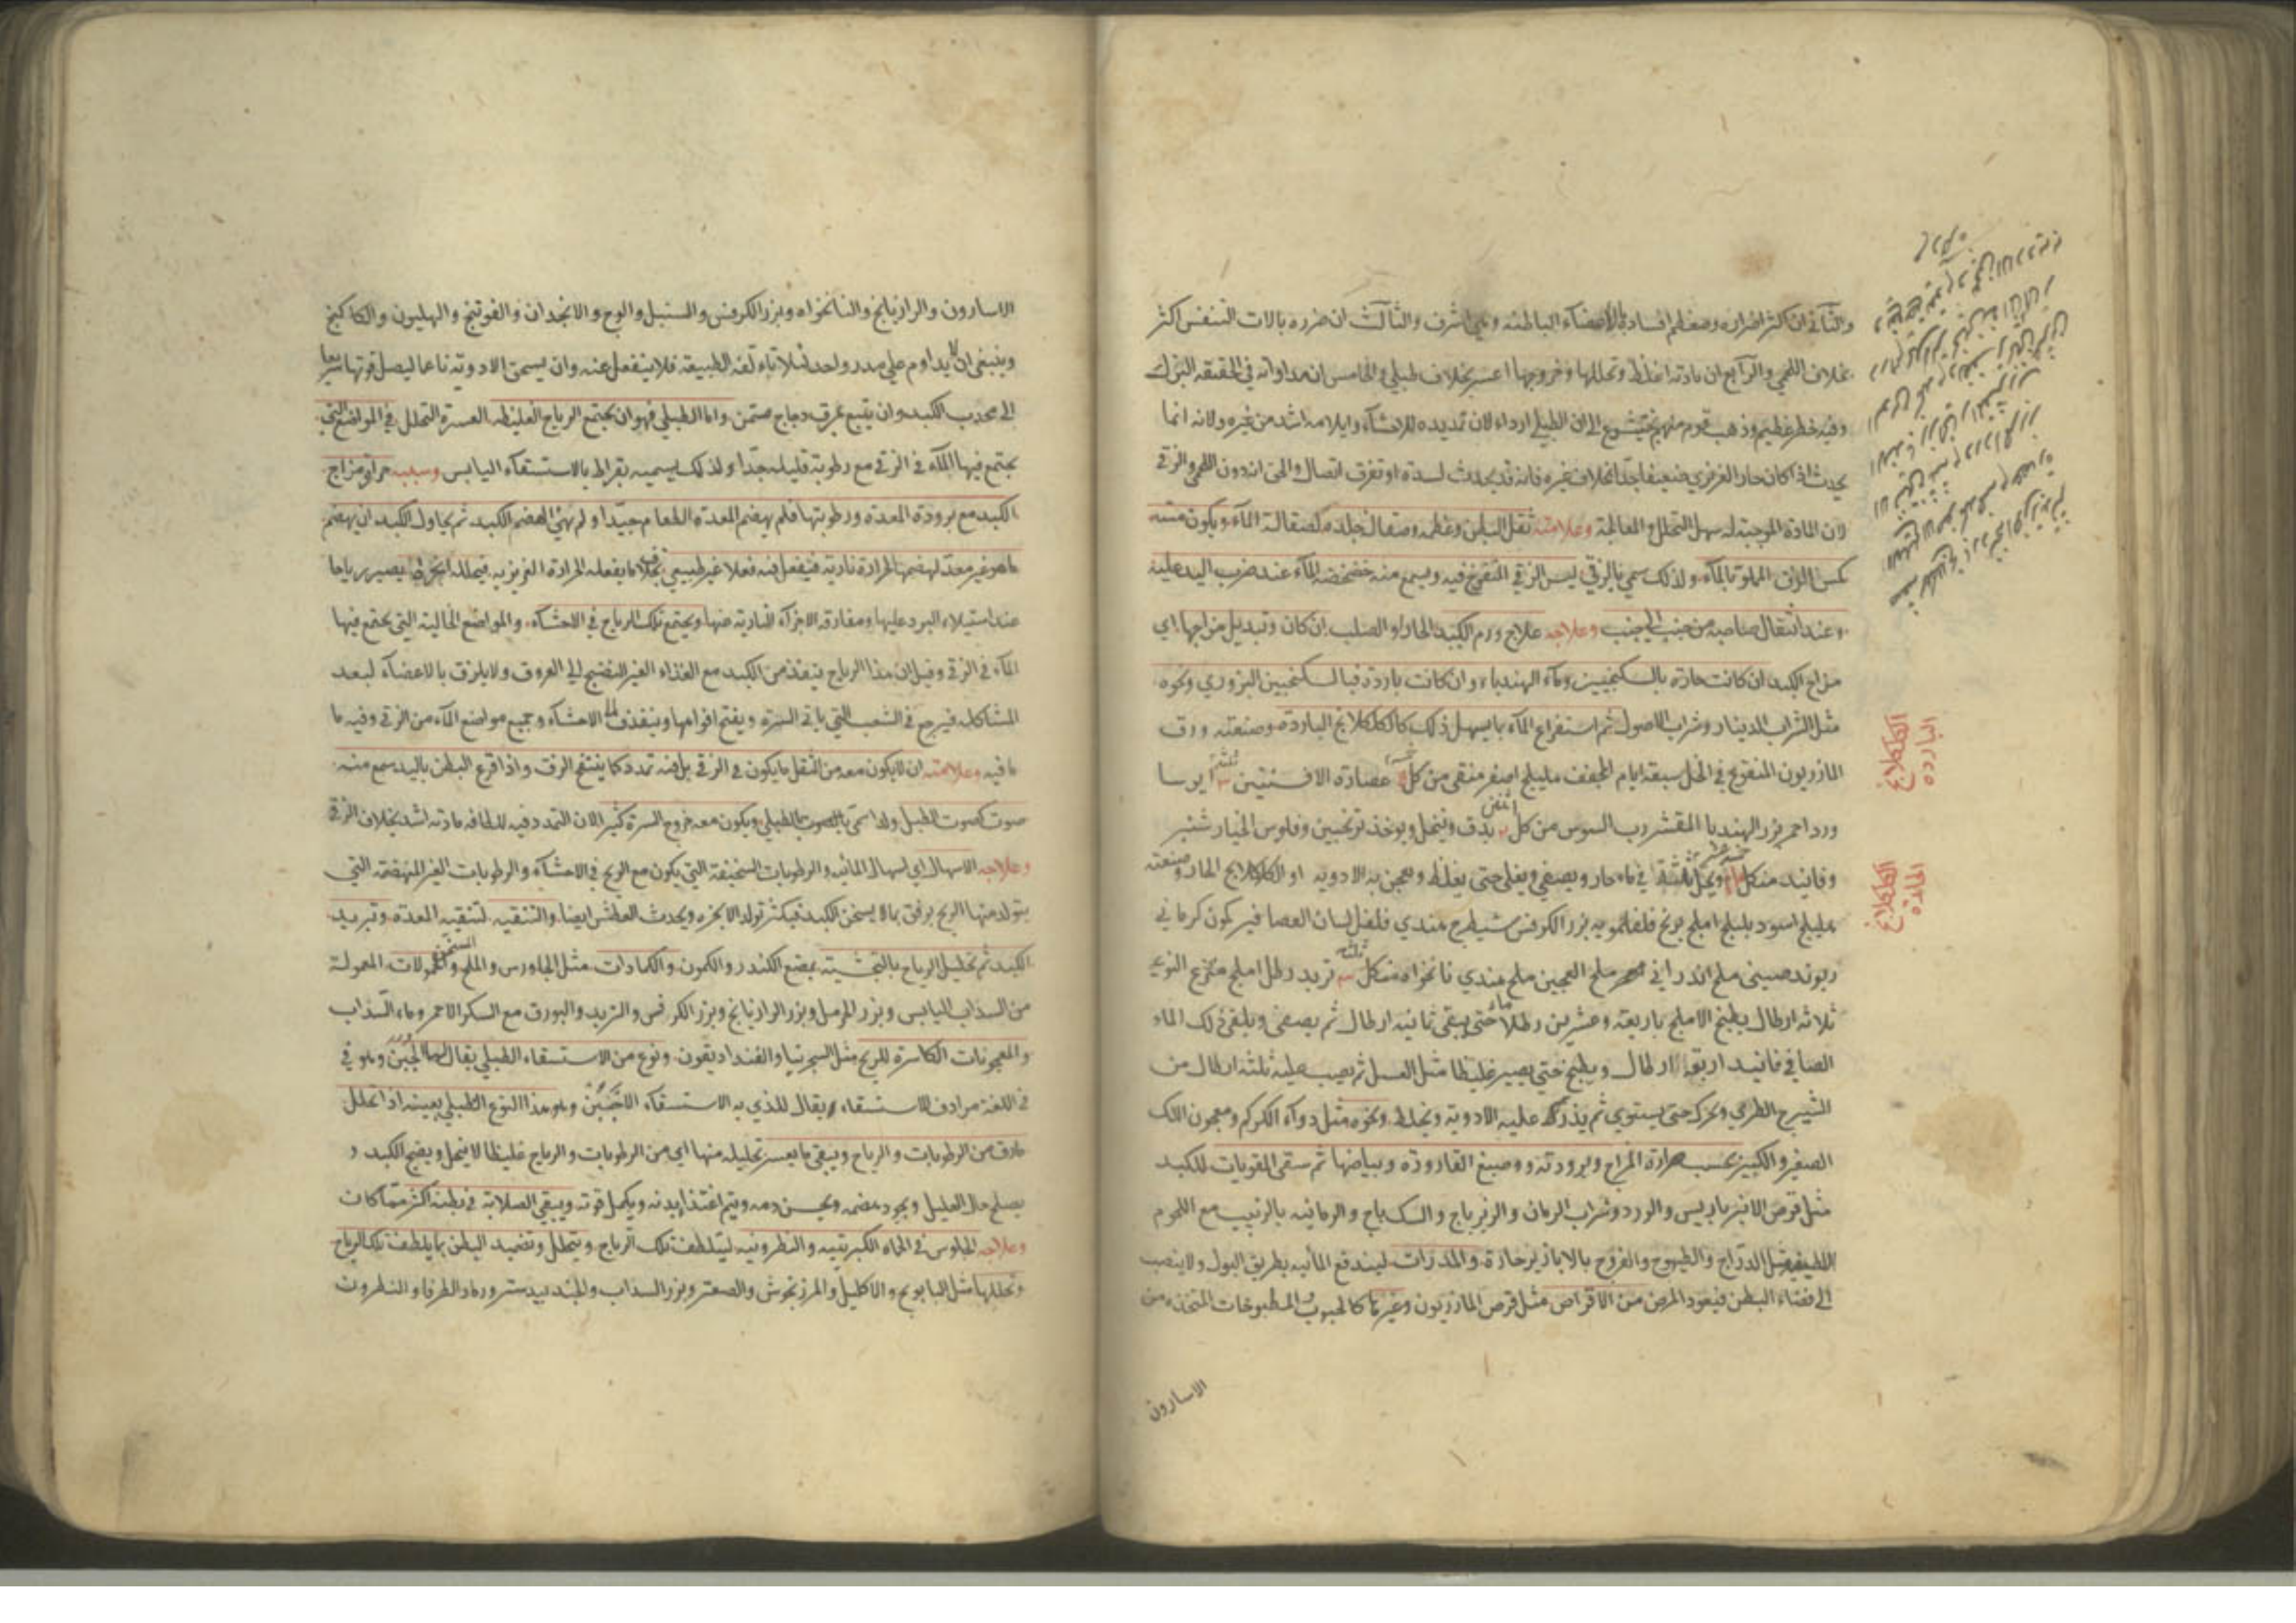 والثاني ان اكثر اضراره ومعظم افساده في الاعضاء الباطنة وهي اشرف والثالث ان ضرره بالات التنفس اكثر
بخلاف اللحمي والرابع ان مادته اغلظ وتحللها وخروجها اعسر بخلاف طبلي والخامس ان مداواته في الحقيقة البزل
وفيه خطر عظيم وذهب قوم منهم بختيشوع الى ان الطبلي ارداء لان تمديده للاحشاء وايلامه اشد من غيره ولانه انما
يحدث اذا كان حار الغريزي ضعيفا جدا بخلاف غيره فانه قد يحدث لسدة او تفرق اتصال والحق اندون اللحمي والزقي
لان المادة الموجبة له سهل التحلل والمعالجة وعلامته ثقل البطن وعظمه وصقال جلده كصقالة الماء ويكون مسه
كمس الزق المملو بالماء ولذلك سمي بالزقي ليس الزقي المنفوخ فيه ويسمع منه خضخضة الماء عند ضرب اليد عليه
وعند انتقال صاحبه من جنب الى جنب وعلاجه علاج ورم الكبد الحار او الصلب ان كان وتبديل مزاجها اي
مزاج الكبد ان كانت حارة بالسكنجبين وماء الهندباء وان كانت باردة فبالسكنجبين البزوري ونحوه
مثل الشراب الدينار وشراب الاصول ثم استفراغ الماء بما يسهل ذلك كالكلكلانج الباردة وصنعته ورق
المازريون المنقوع في الخل سبعة ايام المجفف هليلج اصفر منقى من كل خمسة عصارة الافسنتين ثلثة ايرسا
ورد احمر بزر الهندبا المقشر رب السوس من كل اثنين يدق وينخل ويوخذ ترنجبين وفلوس الخيار شنبر
وفانيد من كل خمسة عشر ويحل الثلثة في ماء حار ويصفى ويغلى حتى يغلظ ويعجن به الادوية او الكلكلانج الحار وصنعته
هليلج اسود بليلج املج برنج فلفلمويه بزر الكرفس شيطرج هندي فلفل لسان العصافير كمون كرماني
ريوند صيني ملح اندراني ملح العجين ملح هندي نانخواه من كل ثلثة تربد رطل املج منزوع النوى
ثلاثة ارطال يطبخ الاملج باربعة وعشرين رطلا ماء حتى يبقى ثمانية ارطال ثم يصفى ويلقى ذلك الماء
الصافي فانيد اربعة ارطال ويطبخ حتى يصير غليظا مثل العسل ثم يصب عليه ثلثة ارطال من
الشيرج الطري ويحرك حتى يستوي ثم يذر عليه الادوية ويخلط ونحوه مثل دواء الكركم ومعجون اللك
الصغير والكبير بحسب حرارة المزاج وبرودته وصبغ القارورة وبياضها ثم سقى المقويات للكبد
مثل قرص الانبرباريس والورد وشراب الرمان والزيرباج والسكباج والرمانيه بالزبيب مع اللحوم
اللطيفة مثل الدراج والطيهوج والفروج بالابازير حارة والمدرات ليندفع المائيه بطريق البول ولا ينصب
الى فضاء البطن فيعود المرض من الاقراص مثل قرص المازريون وغيرها كالحبوب والمطبوخات المتخذة من
الاسارون
الكلكلانج
الباردة
الكلكلانج
الحارة
الاسارون والرازيانج والنانخواه وبزر الكرفس والسنبل والوج والانجدان والفوتنج والهليون والكاكنج
وينبغي ان لا يداوم على مدر واحد لئلا تاءلفه الطبيعة فلا ينفعل عنه وان يسحق الادوية ناعما ليصل قوتها سريعا
الى محدب الكبد وان يتبع بمرق دجاج مسمن واما الطبلي فهو ان يجتمع الرياح الغليظه العسرة التحلل في المواضع التي
يجتمع فيها الماء في الزقي مع رطوبة قليله جدا ولذلك يسميه بقراط بالاستسقاء اليابس وسببه حرارة مزاج
الكبد مع برودة المعدة ورطوبتها فلم يهضم المعدة الطعام جيدا ولم تهيئ لهضم الكبد ثم يحاول الكبد ان يهضم
ما هو غير معد لهضمها لحرارة نارية فيفعل فيه فعلا غير طبيعي بخلاف ما يفعله الحرارة الغريزيه فيحلله ابخرة يصير رياحا
عند استيلاء البرد عليها ومفارقة الاجزاء النارية عنها ويجتمع تلك الرياح في الاحشاء والمواضع الخالية التي يجتمع فيها
الماء في الزقي وقيل ان هذا الرياح ينفذ من الكبد مع الغذاء الغير النضيج الى العروق ولا يلزق بالاعضاء لبعد
المشاكله فيرجع في الشعب التي ياتي السرة ويفتح افواهها وينفذ في الاحشاء وجميع مواضع الماء من الزقي وفيه ما
ما فيه وعلامته ان لا يكون معه من الثقل ما يكون في الزقي بل فيه تمدد كما ينتفخ الزق واذا قرع البطن باليد سمع منه
صوت كصوت الطبل ولذا سمي بالطبلي ويكون معه خروج السرة كثيرا لان التمدد فيه للطافه مادته اشد بخلاف الزقي
وعلاجه الاسهال اي اسهال المائيه والرطوبات السخيفة التي يكون مع الريح في الاحشاء والرطوبات الغير المنهضمة التي
يتولد منها الريح برفق بما لا يسخن الكبد فيكثر تولد الابخره ويحدث العطش ايضا والتنقيه لتنقيه المعدة وتبريد
الكبد ثم تحليل الرياح بالتجشية بمضغ الكندر والكمون والكمادات مثل الجاورس والملح المسخن والحمولات المعمولة
من السذاب اليابس وبزر الحرمل وبزر الرازيانج وبزر الكرفس والتربد والبورق مع السكر الاحمر وماء السذاب
والمعجونات الكاسرة للريح مثل السجرنيا والفنداديقون ونوع من الاستسقاء الطبلي يقال لها الحبن وهو في
في اللغة مرادف للاستسقاء ويقال للذي به الاستسقاء الاحبن وهو هذا النوع الطبلي بعينه اذا تحلل
مارق من الرطوبات والرياح ويبقى ما يعسر تحليله منها اي من الرطوبات والرياح غليظا لا ينحل ويفتح الكبد و
يصلح حال العليل ويجود هضمه ويحسن دمه ويتم اغتذاء بدنه ويكمل قوته ويبقى الصلابة في بطنه اكثر مما كان
وعلاجه الجلوس في المياه الكبريتيه والنطرونيه ليتلطف تلك الرياح ويتحلل وتضميد البطن بما يلطف تلك الرياح
وتحللها مثل البابونج والاكليل والمرزنجوش والصعتر وبزر السداب والجندبيدستر ورماد الطرفا والنطرون